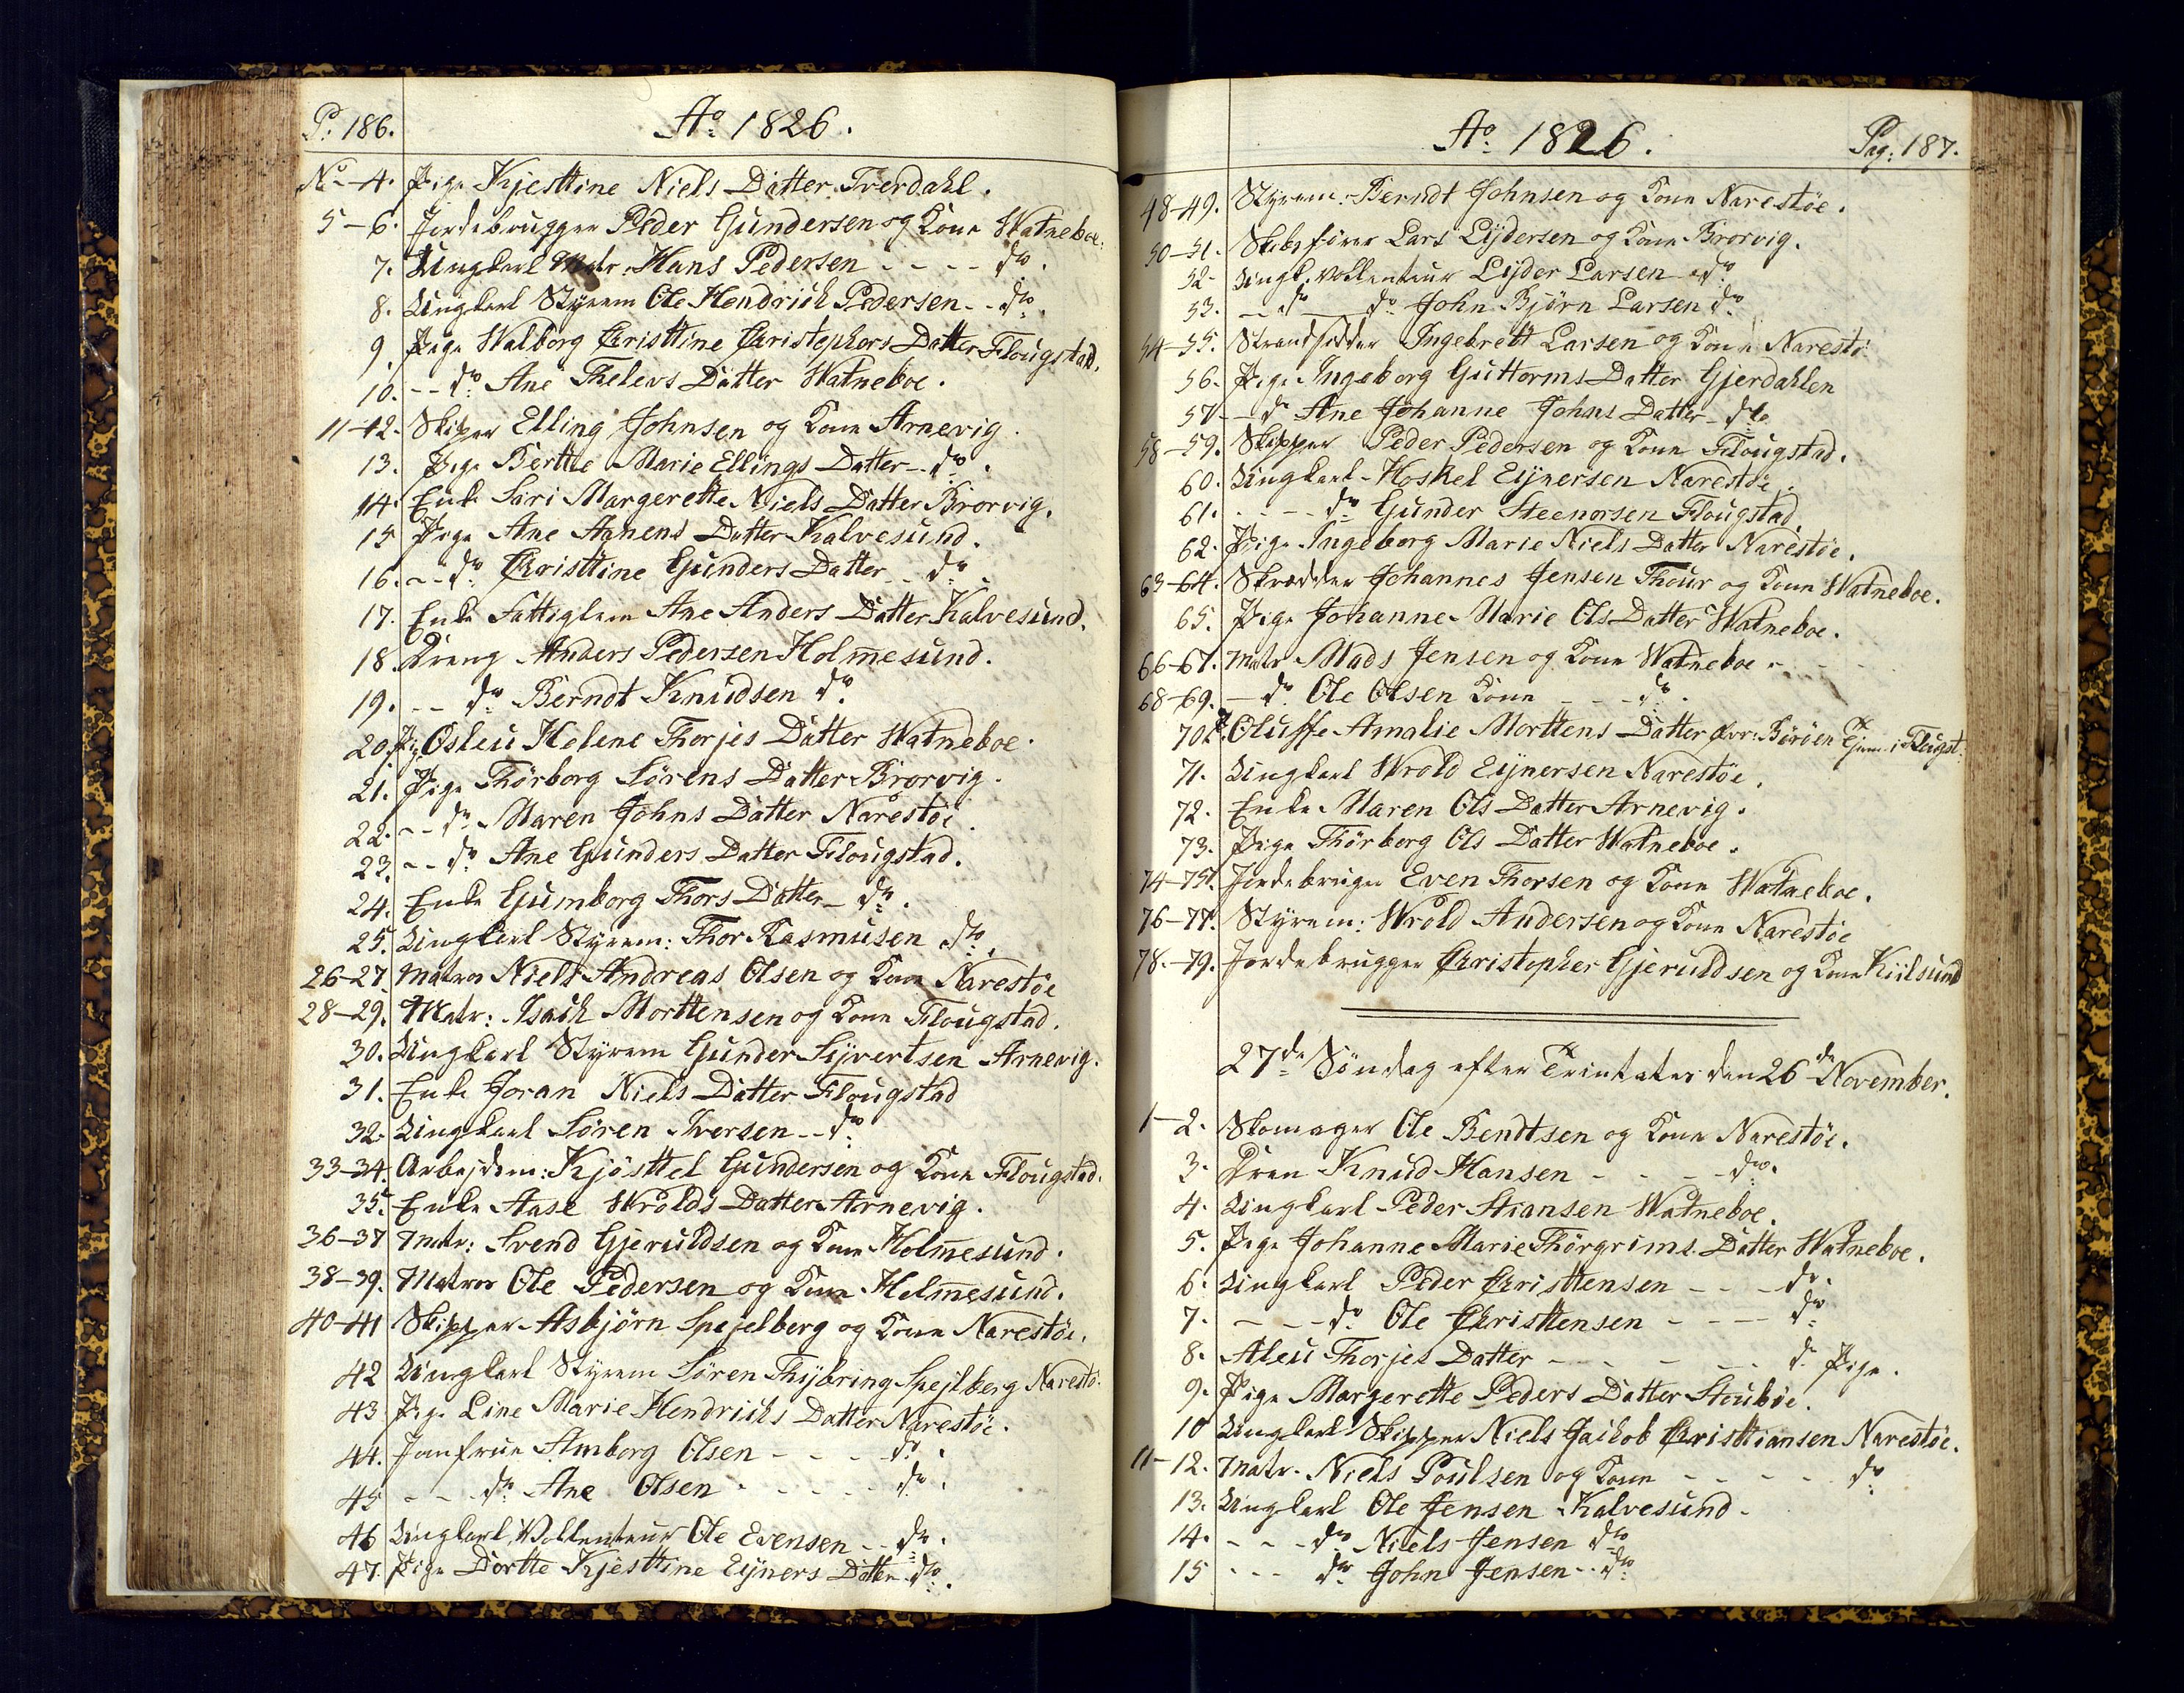 P: 186.
Ao 1826.
No 4. Pige Kjesttine Niels Datter Tverdahl.
5-6. Jordebrugger Peder Gundersen og Kone Watneboe.
7. Ungkarl Matr: Hans Pedersen - - - - do.
8. Ungkarl Styrem Ole Hendrich Pedersen - - do.
9. Pige Walborg Christtine Christophers Datter Flougstad.
10. - - do Ane Thelevs Datter Watneboe.
11-12. Skipper Elling Johnsen og Kone Arnevig.
13. Pige Bertte Marie Ellings Datter - do.
14. Enke Siri Margerette Niels Datter Brorvig.
15 Pige Ane Aanens Datter Kalvesund.
16. - - do Christtine Gunders Datter - - do.
17. Enke Fattiglem Ane Anders Datter Kalvesund.
18. Dreng Anders Pedersen Holmesund.
19. - - do Berndt Knudsen do.
20. Pig Osleu Helene Thorjes Datter Watneboe.
21. Pige Thörborg Sörens Datter Brorvig.
22. - - do Maren Johns Datter Narestöe.
23. - - do Ane Gunders Datter Flougstad.
24. Enke Gumborg Thors Datter - do.
25. Ungkarl Styrem: Thor Rasmusen do.
26-27. Matros Niels Andreas Olsen og Kone Narestöe
28-29. Matr: Isach Morttensen og Kone Flougstad.
30. Ungkarl Styrem Gunder Sijvertsen Arnevig.
31. Enke Joran Niels Datter Flougstad
32. Ungkarl Sören Iversen - - do
33-34. Arbejdsm: Kjösttel Gundersen og Kone Flougstad.
35. Enke Aase Wrolds Datter Arnevig.
36-37 Matr: Svend Gjeruldsen og Kone Holmesund.
38-39. Matros Ole Pedersen og Kone Holmesund.
40-41 Skipper Asbjörn Spejelberg og Kone Narestöe.
42 Ungkarl Styrem Sören Thijbring Spejlberg Narestö.
43. Pige Line Marie Hendrichs Datter Narestöe.
44. Jomfrue Amborg Olsen - - - - do.
45 - - - do Ane Olsen - - - - - do.
46 Ungkarl Vollenteur Ole Evensen - - do.
47. Pige Dortte Kjesttine Eijners Datter do.
Ao 1826.
Pag: 187.
48-49. Styrem: Berndt Johnsen og Kone Narestöe.
50-51. Skibsförer Lars Lijdersen og Kone Brorvig.
52- Ungk. Vollenteur Lijder Larsen do
53. - - do - - do John Bjørn Larsen do
54-55. Strandsidder Ingebrett Larsen og Kone Narestö
56. Pige Ingeborg Guttorms Datter Gjerdahlen
57 - - do Ane Johanne Johns Datter do
58-59. Skipper Peder Pedersen og Kone Flougstad.
60. Ungkarl Hoskel Eijnersen Narestöe.
61. - - - - do Gunder Steenorsen Flougstad.
62. Pige Ingeborg Marie Niels Datter Narestöe.
63-64. Skrædder Johannes Jensen Thour og Kone Watneboe.
65. Pige Johanne Marie Ols Datter Watneboe.
66-67. Matr Mads Jensen og Kone Watneboe.
68-69. - do Ole Olsen Kone - - - do.
70. P. Oluffe Amalie Morttens Datter Børöen Tjener i Flougst:
71. Ungkarl Wrold Eijnersen Narestöe.
72. Enke Maren Ols Datter Arnevig.
73. Pige Thörborg Ols Datter Watneboe.
74-75. Jordebruger Even Thorsen og Kone Watneboe.
76-77. Styrem: Wrold Andersen og Kone Narestöe
78.-79. Jordebrugger Christopher Gjeruldsen og Kone Kiilsund
27de Söndag efter Trintates den 26de November.
1-2. Skomager Ole Bendtsen og Kone Narestöe.
3. Dren Knud Hansen - - - - do.
4. Ungkarl Peder Stiansen Watneboe.
5. Pige Johanne Marie Thörgrims Datter Watneboe.
6. Ungkarl Peder Christtensen - - - do.
7. - - - do Ole Christtensen - - - - do
8. Aleu Thorjes Datter - - - - - do Pige.
9. Pige Margerette Peders Datter Stouböe.
10 Ungkarl Skipper Niels Jachob Christtiansen Narestöe.
11-12. Matr. Niels Poulsen og Kone - - - - - do
13. Ungkarl Ole Jensen Kalvesund.
14. - - - do Niels Jensen do
15 - - - do John Jensen - - do